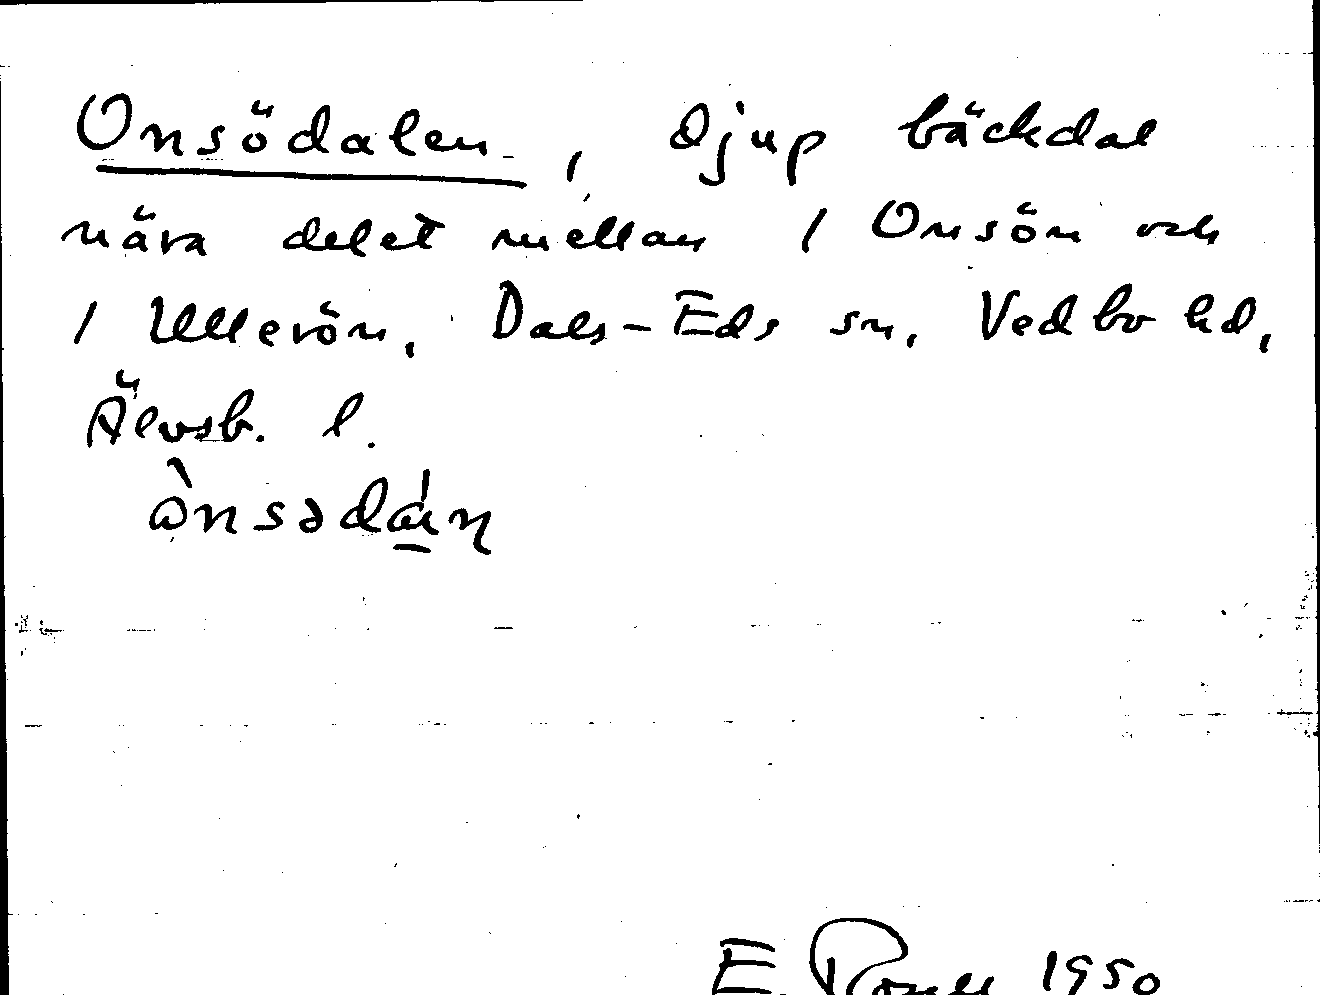 Onsödalen, djup bäckdal
nära delet mellan / Onsön och
/ Ullerön, Dals-Eds sn, Vedbo hd,
Älvsb. l.
E. 1950